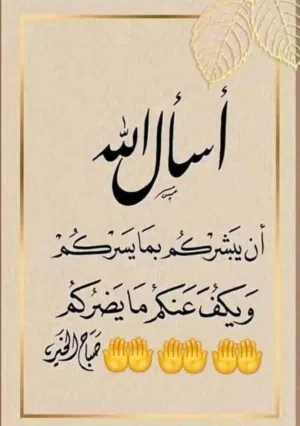 أسأل الله
أن يبشركم بما يسركم
ويكف عنكم ما يضركم
صباح الخير